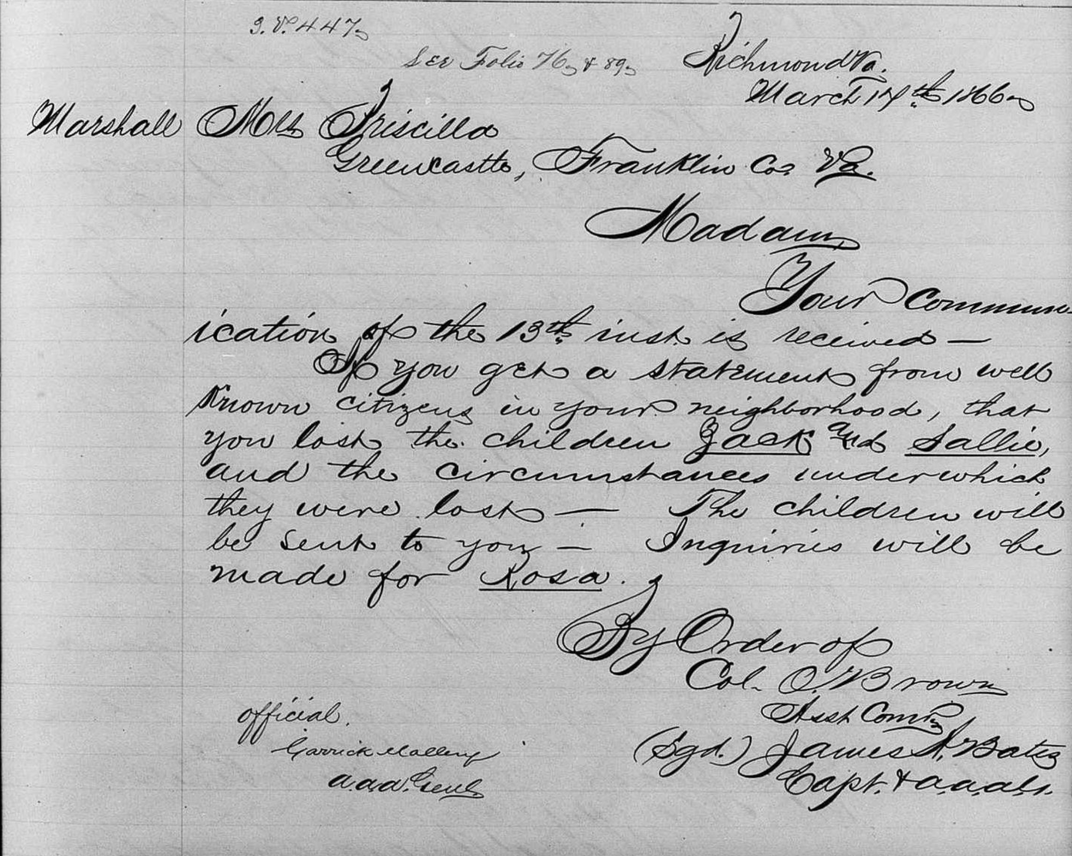 S.V. 447,
See Folio 76, & 89,
Richmond Va.
March 17th 1866,
Marshall Mrs Priscilla
Greencastle, Franklin Co. Va.
Madam,
Your Commun-
ication of the 13th inst is received —
If you get a statement from well
Known citizens in your neighborhood, that
you lost the children Jack and Sallie,
and the circumstances under which
they were lost — The children will
be sent to you — Inquiries will be
made for Rosa.
By Order of
Col. O. Brown
Asst Comr,
official.
(Sgd.) James A. Bates
Garrick Mallery
Capt. & a.a.a.G.
a.a.a. Genl